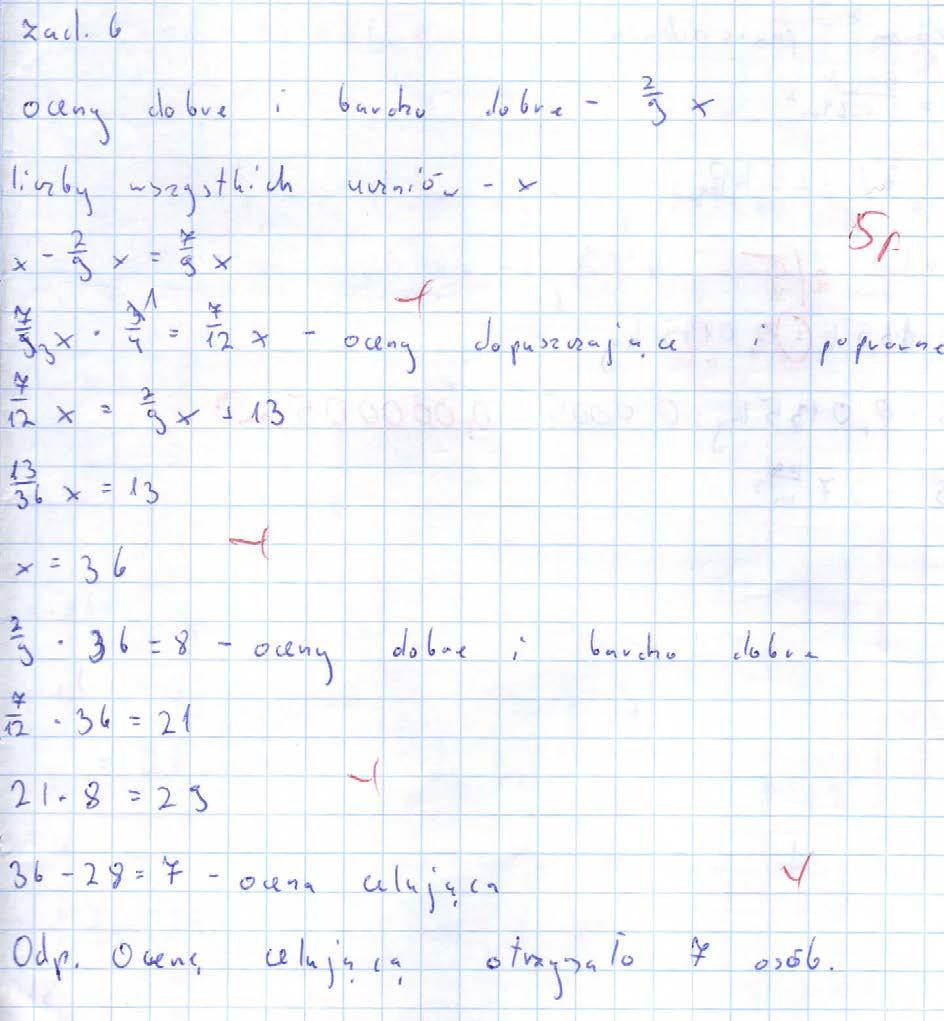 zad. 6
oceny dobre i bardzo dobre - 2/9 x
liczby wszystkich uczniów - x
5p
x - 2/9 x = 7/9 x
7/9 3 x · 3/4 1 = 7/12 x - oceny dopuszczające i poprawne
7/12 x = 2/9 x + 13
13/36 x = 13
x = 36
2/9 · 36 = 8 - oceny dobre i bardzo dobre
7/12 · 36 = 21
21 + 8 = 29
36 - 28 = 7 - ocena celująca
Odp. Ocenę celującą otrzymało 7 osób.